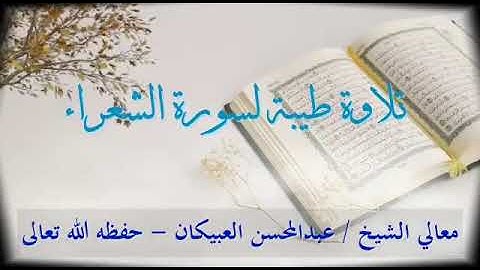 تلاوة طيبة لسورة الشعراء
معالي الشيخ / عبدالمحسن العبيكان – حفظه الله تعالى